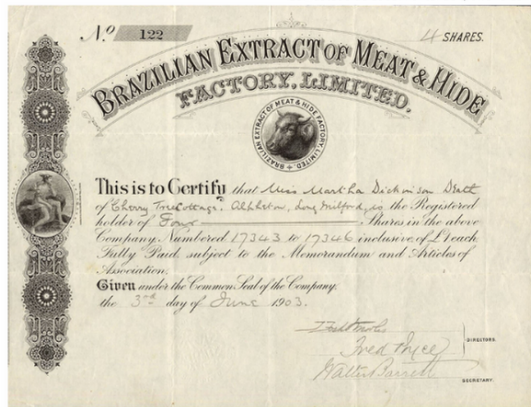 No. 122
4 SHARES.
BRAZILIAN EXTRACT OF MEAT & HIDE
FACTORY, LIMITED.
BRAZILIAN EXTRACT OF MEAT & HIDE FACTORY LIMITED
This is to Certify that Miss Martha Dickinson Death
of Cherry Tree Cottage, Alpheton, Long Melford, is the Registered
holder of Four Shares in the above
Company, Numbered 17343 to 17346 inclusive of £1 each
Fully Paid, subject to the Memorandum and Articles of
Association.
Given under the Common Seal of the Company.
the 3rd day of June 1903.
DIRECTORS.
Walter
SECRETARY.